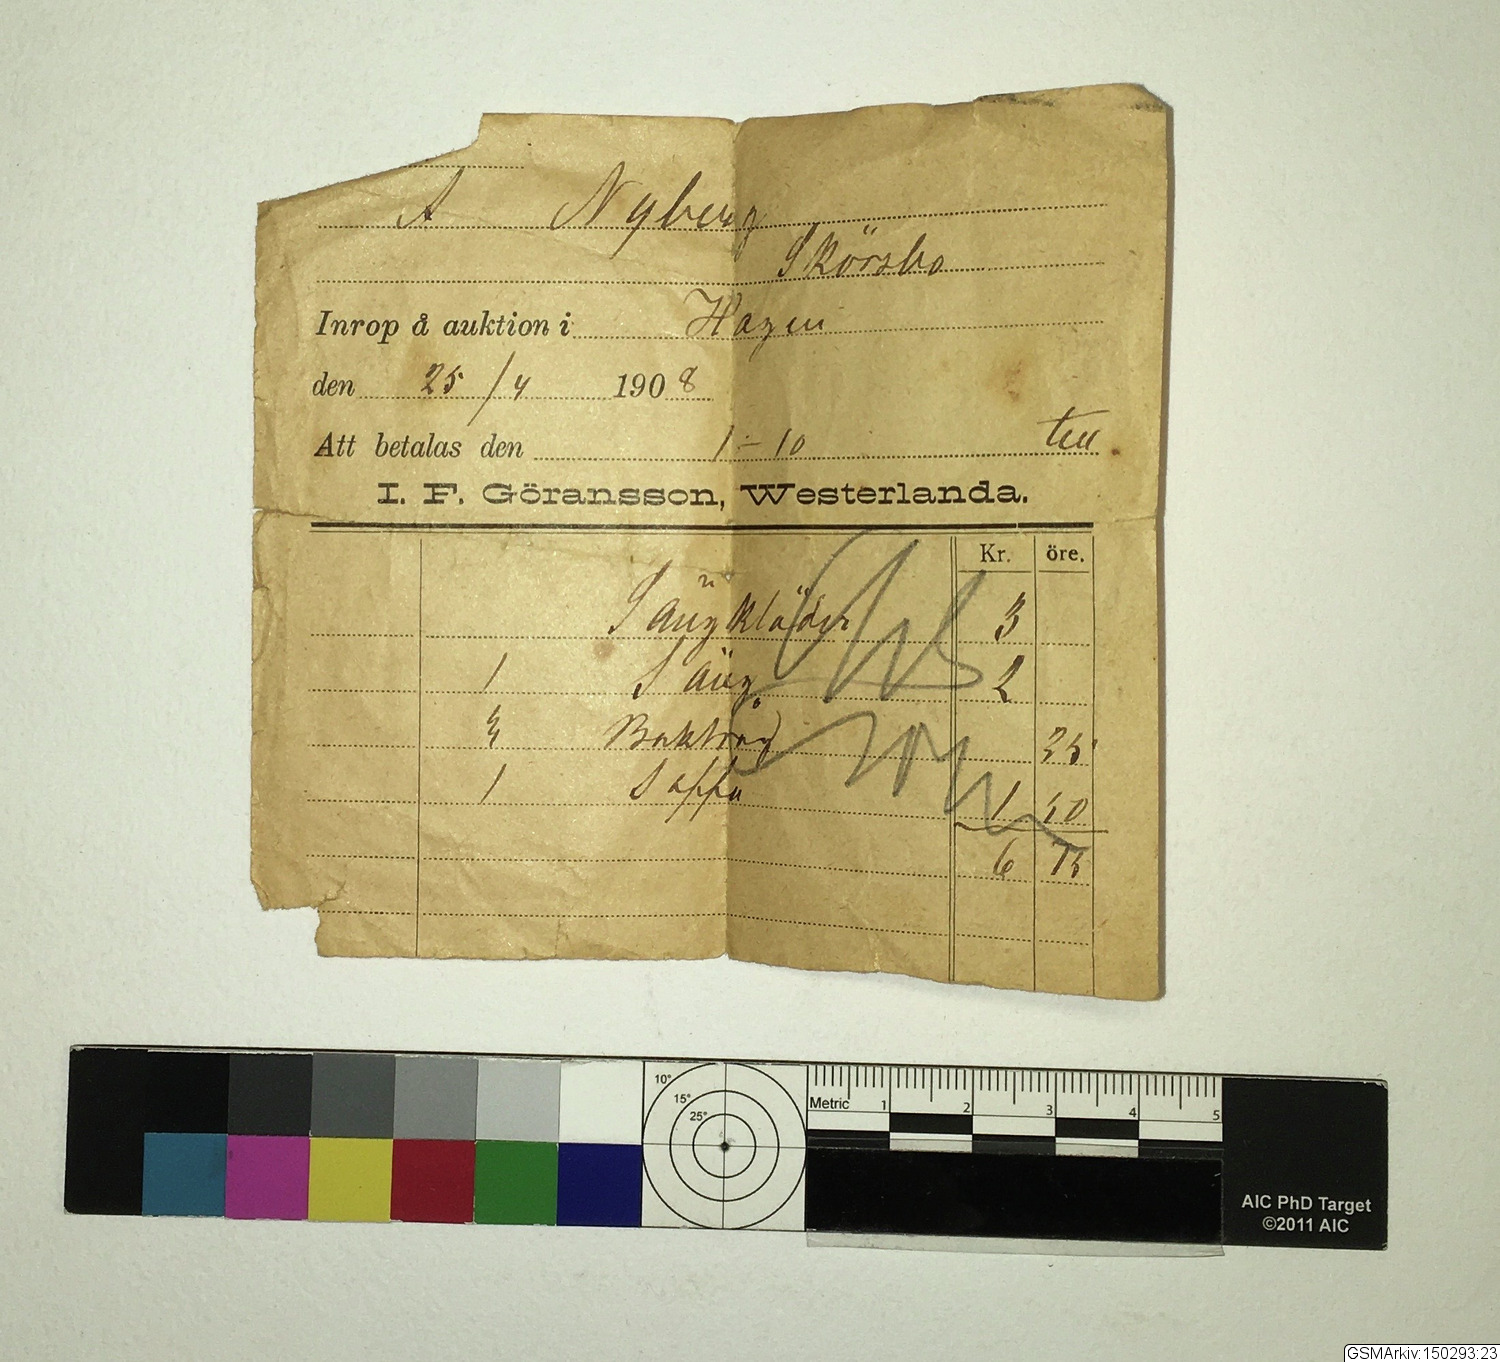 A Nyberg
Skörsbo
Inrop å auktion i Hagen
den 25/4 1908
Att betalas den 1-10
I. F. Göransson, Westerlanda.
Kr. öre.
Sängkläder 3
1 Säng 2
3 Baktråg 25
1 Soffa 1 50
6 75
10°
15°
25°
Metric 1 2 3 4 5
AIC PhD Target
©2011 AIC
GSMArkiv:150293:23